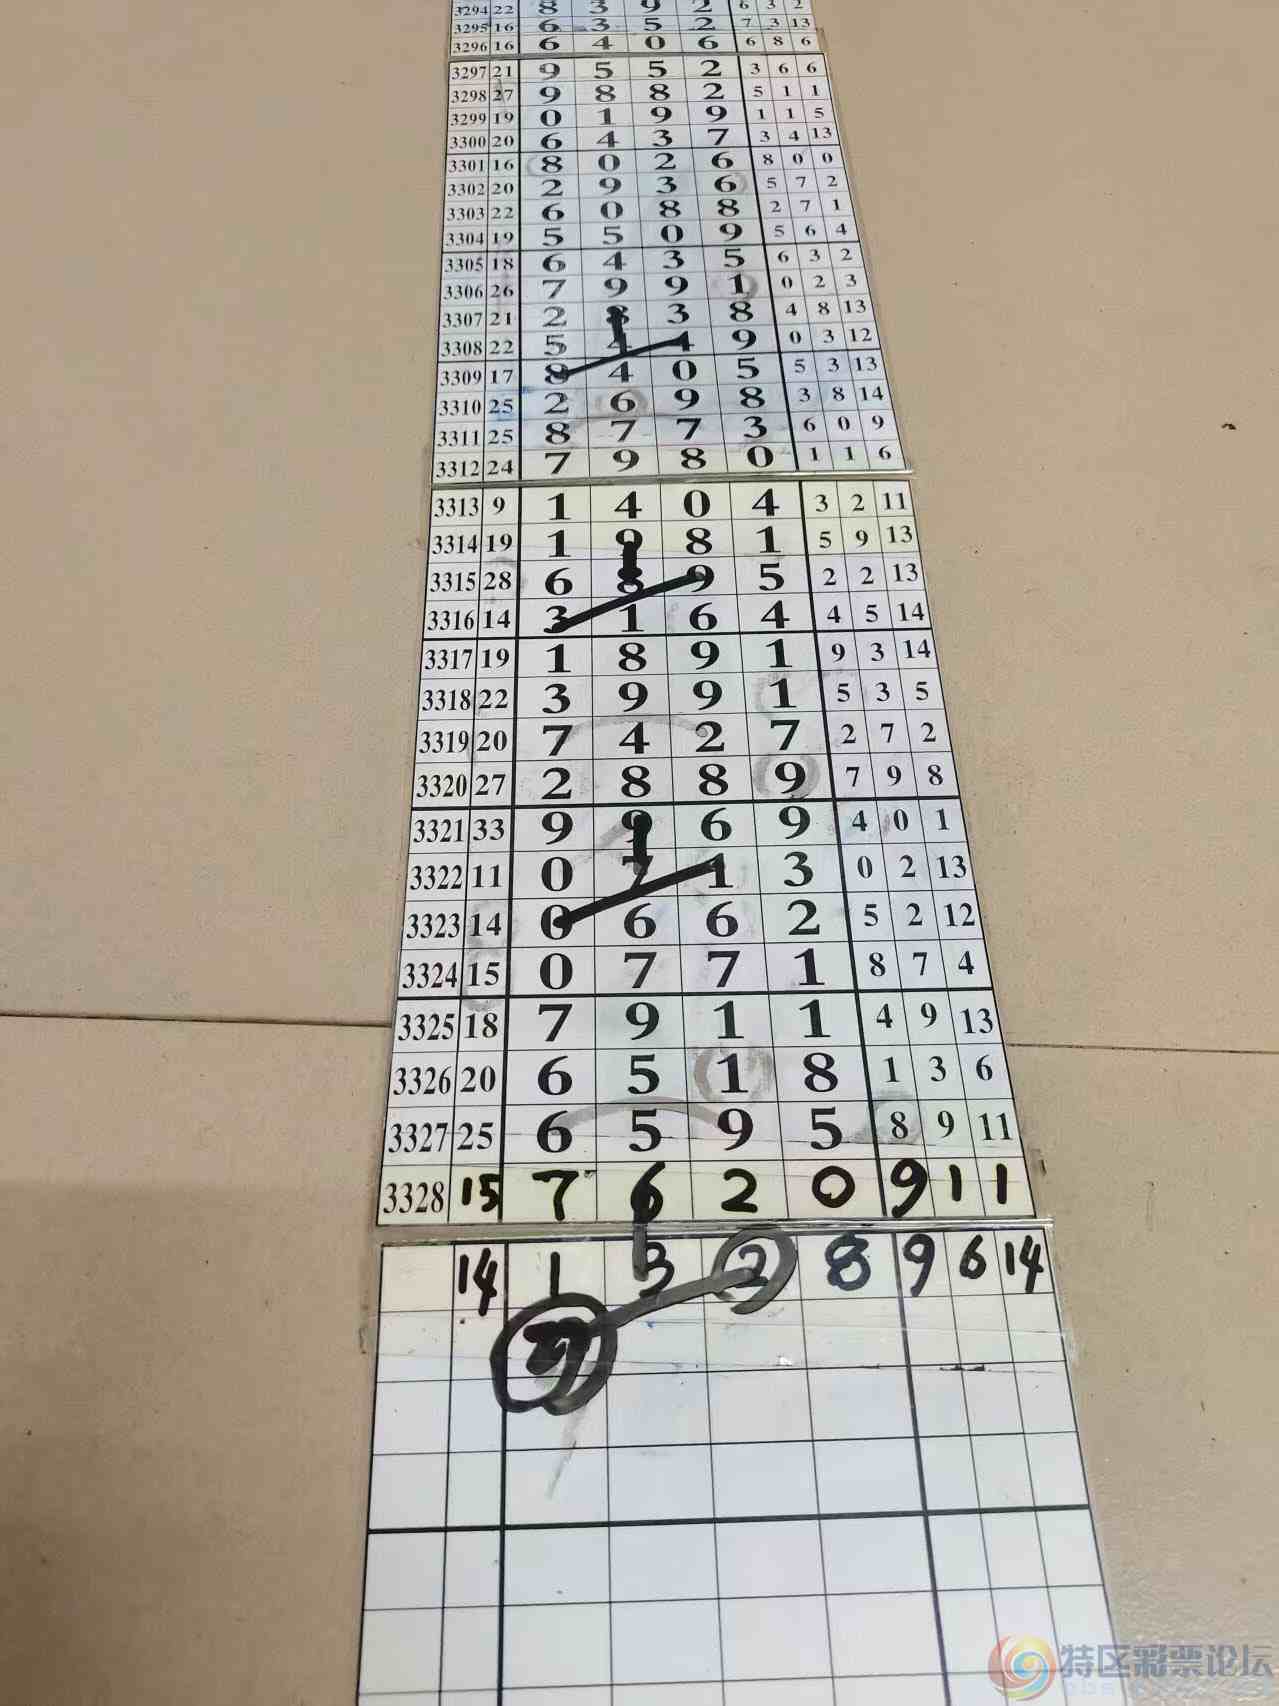 3294 22 8 3 9 2 6 3 2
3295 16 6 3 5 2 7 3 13
3296 16 6 4 0 6 6 8 6
3297 21 9 5 5 2 3 6 6
3298 27 9 8 8 2 5 1 1
3299 19 0 1 9 9 1 1 5
3300 20 6 4 3 7 3 4 13
3301 16 8 0 2 6 8 0 0
3302 20 2 9 3 6 5 7 2
3303 22 6 0 8 8 2 7 1
3304 19 5 5 0 9 5 6 4
3305 18 6 4 3 5 6 3 2
3306 26 7 9 9 1 0 2 3
3307 21 2 8 3 8 4 8 13
3308 22 5 4 4 9 0 3 12
3309 17 8 4 0 5 5 3 13
3310 25 2 6 9 8 3 8 14
3311 25 8 7 7 3 6 0 9
3312 24 7 9 8 0 1 1 6
3313 9 1 4 0 4 3 2 11
3314 19 1 9 8 1 5 9 13
3315 28 6 8 9 5 2 2 13
3316 14 3 1 6 4 4 5 14
3317 19 1 8 9 1 9 3 14
3318 22 3 9 9 1 5 3 5
3319 20 7 4 2 7 2 7 2
3320 27 2 8 8 9 7 9 8
3321 33 9 9 6 9 4 0 1
3322 11 0 7 1 3 0 2 13
3323 14 0 6 6 2 5 2 12
3324 15 0 7 7 1 8 7 4
3325 18 7 9 1 1 4 9 13
3326 20 6 5 1 8 1 3 6
3327 25 6 5 9 5 8 9 11
3328 15 7 6 2 0 9 1 1
14 1 3 2 8 9 6 14
特区彩票论坛